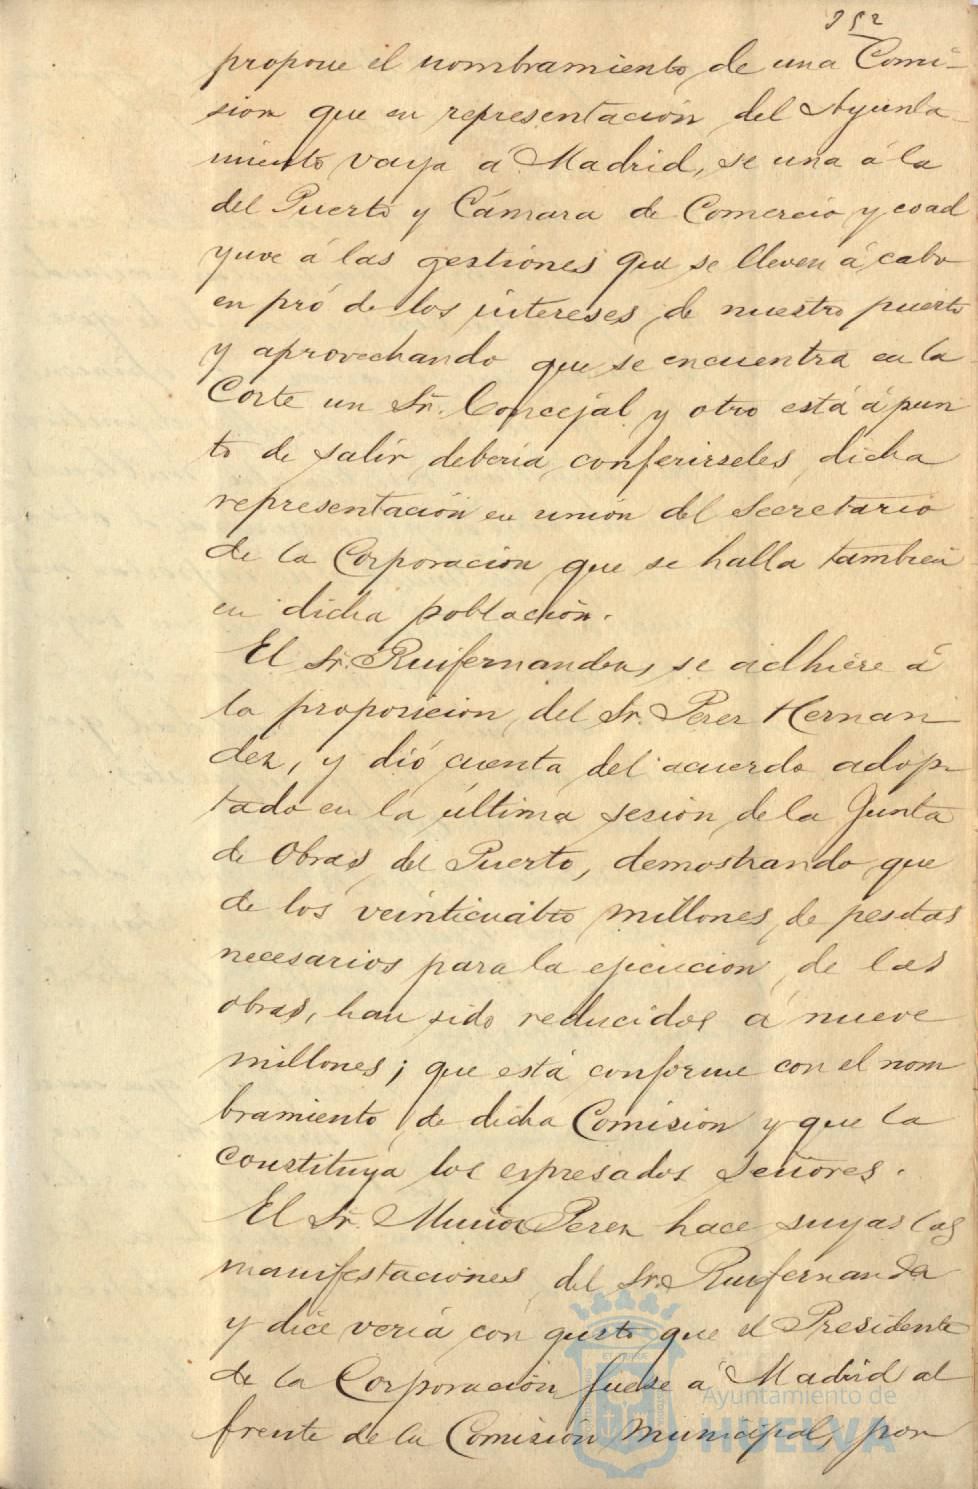 252
propone el nombramiento de una Comi-
sion que en representación del Ayunta-
miento vaya á Madrid, se una á la
del Puerto y Cámara de Comercio y coad
yuve á las gestiones que se lleven á cabo
en pró de los intereses de nuestro puerto
y aprovechando que se encuentra en la
Corte un Sr. Concejal y otro está á pun
to de salir debería conferirseles dicha
representación en unión del Secretario
de la Corporación que se halla tambien
en dicha población.
El Sr. Ruifernandez, se adhiere á
la proposicion del Sr. Perez Hernan
dez, y dió cuenta del acuerdo adop-
tado en la última sesión de la Junta
de Obras del Puerto, demostrando que
de los veinticuatro millones de pesetas
necesarios para la ejecución de las
obras, han sido reducidos á nueve
millones; que está conforme con el nom
bramiento de dicha Comisión y que la
constituya los expresados Señores.
El Sr. Muñoz Perez hace suyas las
manifestaciones del Sr. Ruifernandez
y dice vería con gusto que el Presidente
de la Corporación fuese á Madrid al
frente de la Comisión Municipal, por
Ayuntamiento de
HUELVA